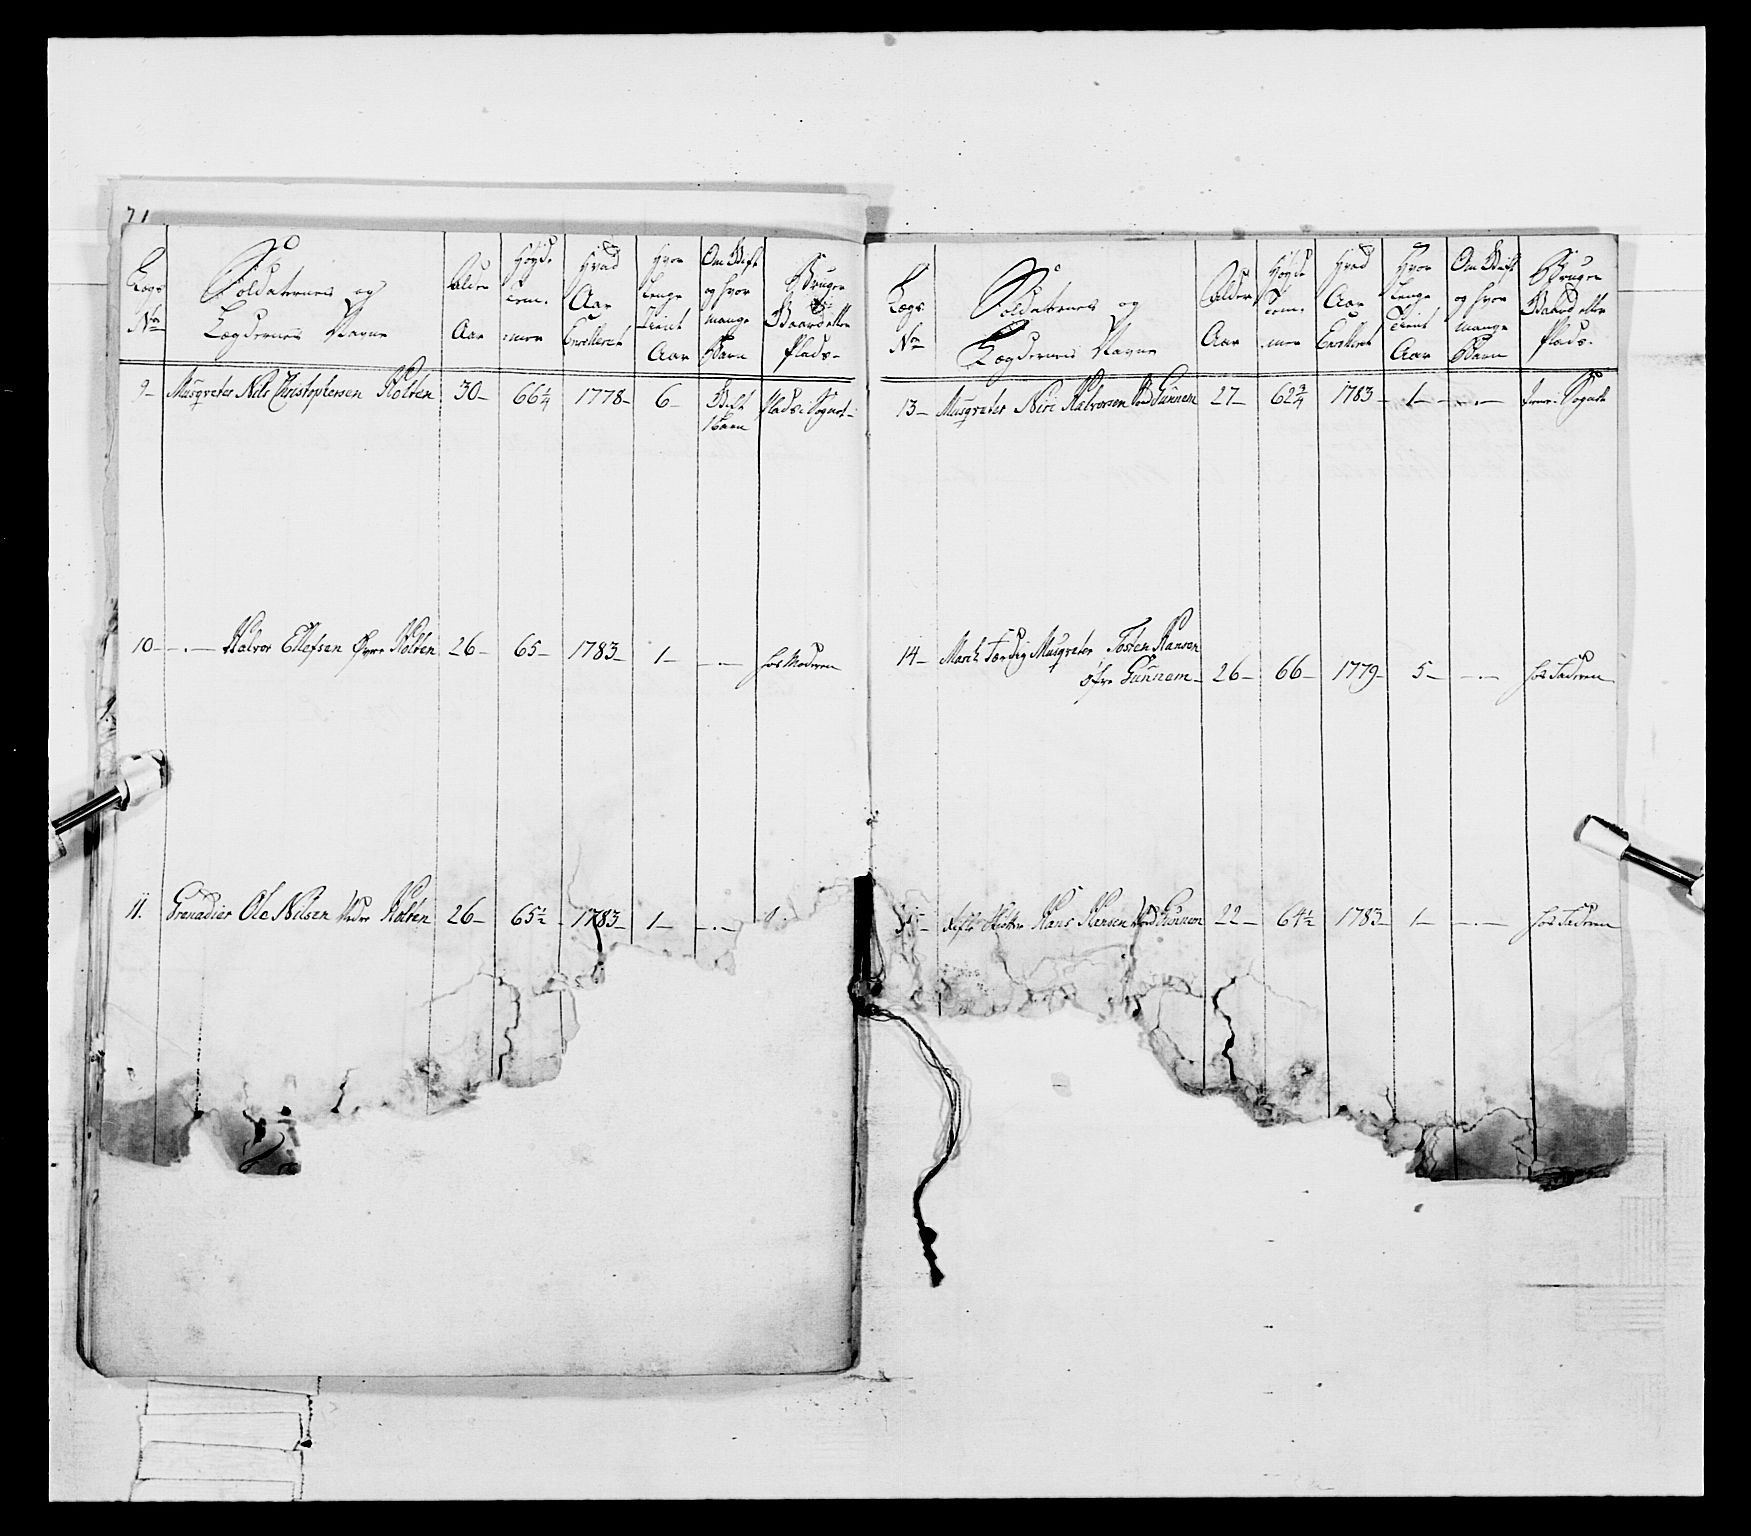 71
Lægs Nro | Soldaternes og Lægdernes Nagne | Alder Aar | Høyde Tommer | Hvad Aar Enrolleret | Hvor Lenge Tient Aar | Om Gift og hvor mange Barn | Bruger Gaard eller Plads-
9- Musqveter Nils Christophersen Holten 30- 66¼ 1778- 6- Gift 1 Barn Plads: Sognet-
10- -.- Halvor Ellefsen Øvre Holten 26- 65- 1783- 1- -.- hos Moderen
11. Grenadier Ole Nilsen Neder Holten 26- 65½ - 1783- 1- -.-
Lægs Nro | Soldaternes og Lægdernes Nagne | Alder Aar | Høyde Tommer | Hvad Aar Enrolleret | Hvor Lenge Tient Aar | Om Gift og hvor mange Barn | Bruger Gaard eller Plads.
13- Musqveter Niri Halvorsen Gunnem 27- 62¾ 1783- 1- -.- Sognet
14- March Færdig Musqveter Tosten Hansen
øfre Gunnem- 26- 66- 1779- 5- -.- hos Faderen
Hans Hansen Gunnem 22- 64½ 1783- 1- -.- hos Faderen